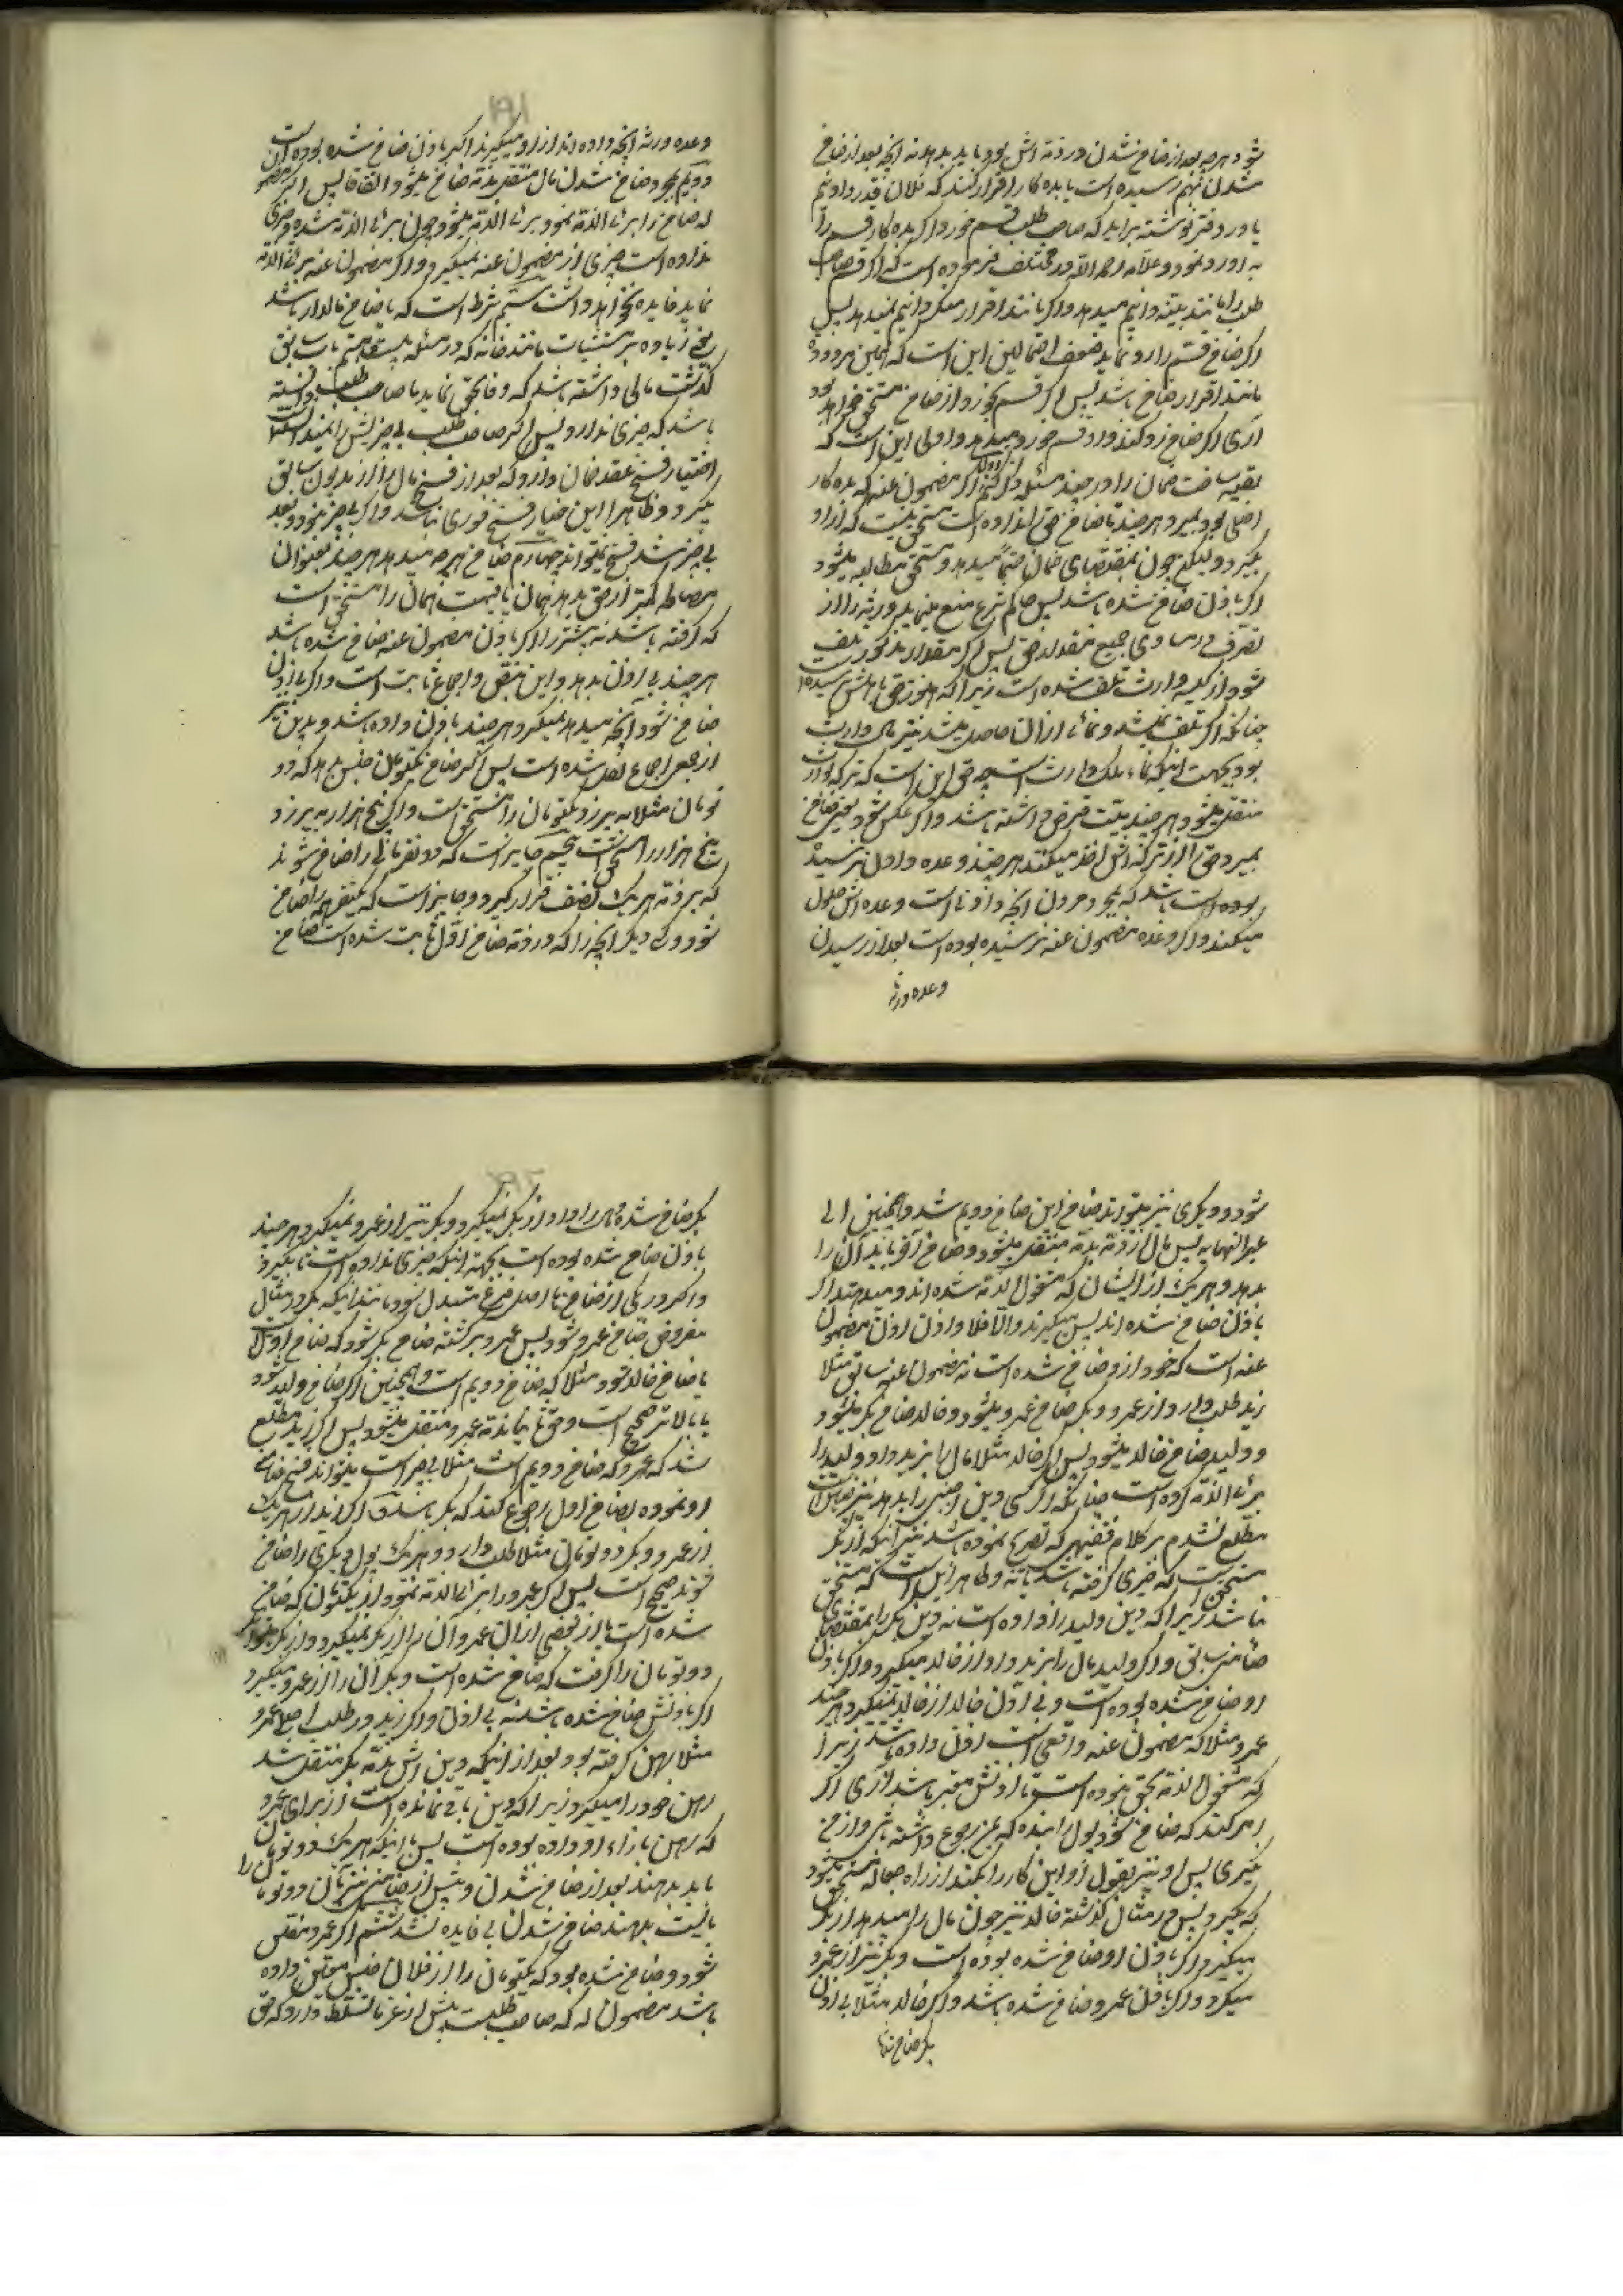 شود هرچه بعد از ضامن شدن در ذمه اش بود باید بدهد نه آنچه بعد از ضامن
شدن بهم رسیده است یا بده کار اقرار کند که فلان قدر دادنیم
یا در دفتر نوشته برآید که صاحب طلب قسم خورد اگر بده کار قسم را
به او رد نمود و علامه رحمه الله در مختلف فرموده است که اگر قسم صاحب
طلب را مانند بینه دانیم میدهد و اگر مانند اقرار منکر دانیم نمیدهد پس
اگر ضامن قسم را رد نماید ضعف احتمالین این است که
مانند اقرار ضامن باشد پس اگر قسم بخورد از ضامن مستحق خواهد بود
آری اگر ضامن رد کند و او قسم خورد میدهد و اولی این است که
بقیه مباحث ضمان را در چند مسئله ذکر کنم اول اگر مضمون عنه که بده کار
اصلی بود بمیرد هرچند تا ضامن حق را نداده است مستحق نیست که از او
بگیرد ولیکن چون بمقتضای ضمان حتما میدهد و مستحق مطالبه میشود
اگر باذن ضامن شده باشد پس حاکم شرع منع مینماید ورثه را از
تصرف در مساوی جمیع مقدار حق پس اگر مقدار مذکور تلف
شود از کیسه وارث تلف شده است زیرا که هنوز حق باهلش نرسیده
چنانکه اگر تلف نمیشد و نمائی از آن حاصل میشد نیز مال وارث
بود بجهت اینکه نماء ملک وارث است چه حق این است که ترکه بوارث
منتقل میشود هرچند میت قرض داشته باشد و اگر عکس شود یعنی ضامن
بمیرد حق را از ترکه اش اخذ میکنند هرچند وعده دادن نرسیده
بوده است باشد که بمجرد مردن آنچه دادنی است وعده اش حلول
میکند و اگر وعده مضمون عنه نرسیده بوده است بعد از رسیدن
وعده ورثه
وعده ورثه آنچه داده اند از او میگیرند اگر باذن ضامن شده بوده است
دویم بمجرد ضامن شدن مال منتقل بذمه ضامن میشود اتفاقا پس اگر مضمون
له ضامن را بری الذمه نمود بری الذمه میشود و چون بری الذمه شده و چیزی
نداده است چیزی از مضمون عنه نمیگیرد و اگر مضمون عنه بری الذمه
نماید فایده نخواهد داشت سیم شرط است که یا ضامن مالدار باشد
یعنی زیاده بر مستثنیات مانند خانه که در مسئله بیست و هشتم باب سابق
گذشت مالی داشته باشد که وفا بحق نماید یا صاحب طلب دانسته
باشد که چیزی ندارد پس اگر صاحب طلب بی چیزیش را نمیدانست
اختیار فسخ عقد ضمان دارد که بعد از فسخ مال را از مدیون سابق
بگیرد و ظاهرا این خیار فسخ فوری نباشد و اگر بی چیز نبود و بعد
بی چیز شد فسخ نمیتواند چهارم ضامن هرچه میدهد هرچند بعنوان
مصالحه کمتر از حق بدهد همان یا قیمت همان را مستحق است
که گرفته باشد نه بیشتر را اگر باذن مضمون عنه ضامن شده باشد
هرچند بی اذن بدهد و این بنص و اجماع ثابت است و اگر بی اذن
ضامن شود آنچه میدهد نمیگیرد هرچند باذن داده باشد و بر این نیز
از جمعی اجماع نقل شده است پس اگر ضامن یکتومان جنس بدهد که دو
تومان مثلا به ارزد یکتومان را مستحق است و اگر پنج هزار به ارزد
پنج هزار را مستحق است پنجم جایز است که دو نفر مالی را ضامن شوند
که بر ذمه هر یک نصف قرار گیرد و جایز است که یکنفر همه را ضامن
شود و یکی دیگر آنچه را که در ذمه ضامن اول ثابت شده است ضامن
شود و دیگری نیز میتواند ضامن این ضامن دویم شد و همچنین الی
غیر النهایه پس مال از ذمه بذمه منتقل میشود و ضامن آخر باید آن را
بدهد و هر یک از ایشان که مشغول الذمه شده اند و میدهند اگر
باذن ضامن شده اند پس میگیرند و الا فلا و اذن اذن مضمون
عنه است که خود از او ضامن شده است نه مضمون عنه سابق مثلا
زید طلب دارد از عمرو و بکر ضامن عمرو میشود و خالد ضامن بکر میشود
و ولید ضامن خالد میشود پس اگر خالد مثلا مال را بزید داد ولید را
بری الذمه کرده است چنانکه اگر کسی دین اجنبی را بدهد نیز چنین است
مطلع نشدم بر کلام فقیهی که تصریح نموده باشد بر آنکه از بکر
مستحق است که چیزی گرفته باشد یا نه و ظاهر این است که مستحق
نباشد زیرا که دین ولید را داده است نه دین بکر را بمقتضای
ضامنی سابق و اگر ولید مال را بزید داد از خالد میگیرد اگر باذن
او ضامن شده بوده است و بی اذن خالد از خالد نمیگیرد هرچند
عمرو مثلا که مضمون عنه واقعی است اذن داده باشد زیرا
که مشغول الذمه بحق نبوده است تا اذنش معتبر باشد آری اگر
امر کند که ضامن شود پول را بده که بمن رجوع داشته باشی و از من
بگیری پس او نیز بقول او این کار را بکند از راه جعاله مستحق میشود
که بگیرد پس در مثال گذشته خالد نیز چون مال را میدهد از بکر
میگیرد اگر باذن او ضامن شده بوده است و بکر نیز از عمرو
میگیرد اگر باذن عمرو ضامن شده باشد و اگر خالد مثلا بی اذن
بکر ضامن شده
بکر ضامن شده مال را داد از بکر نمیگیرد و بکر نیز از عمرو نمیگیرد هرچند
باذن ضامن شده بوده است بجهة اینکه چیزی نداده است تا بگیرد
و اگر در یکی از ضامن ها اصل بفرع متبدل شود مانند اینکه بکر در مثال
مفروض ضامن عمرو شود پس عمرو برگشته ضامن بکر شود که ضامن اول است
یا ضامن خالد شود مثلا که ضامن دویم است و همچنین اگر ضامن ولید شود
یا بالاتر صحیح است و حق ثانیا بذمه عمرو منتقل میشود پس اگر زید مطلع
شد که عمرو که ضامن دویم است مثلا بی چیز است میتواند فسخ ضمان
او نموده بضامن اول رجوع کند که بکر باشد و اگر زید از هر یک
از عمرو و بکر دو تومان مثلا طلب دارد و هر یک پول دیگری را ضامن
شوند صحیح است پس اگر عمرو را بری الذمه نمود از یکتومان که ضامن
شده است یا از بعضی از آن عمرو آن را از بکر نمیگیرد و از بکر میتواند
دو تومان را گرفت که ضامن شده است و بکر آن را از عمرو میگیرد
اگر باذنش ضامن شده باشد نه بی اذن و اگر زید در طلب از عمرو
مثلا رهن گرفته بود بعد از اینکه دین اش بذمه بکر منتقل شد
رهن خود را میگیرد زیرا که دین باقی نمانده است از برای عمرو
که رهن بازاء او داده بوده است پس با اینکه هر یک دو تومان را
باید بدهند بعد از ضامن شدن و پیش از ضامن شدن نیز آن دو تومان
بایست بدهند ضامن شدن بی فایده نشد ششم اگر عمرو مفلس
شود و ضامن شده بود که یکتومان را از فلان جنس معین داده
باشد مضمون له که صاحب طلب است پیش از غرما تسلط دارد که حق